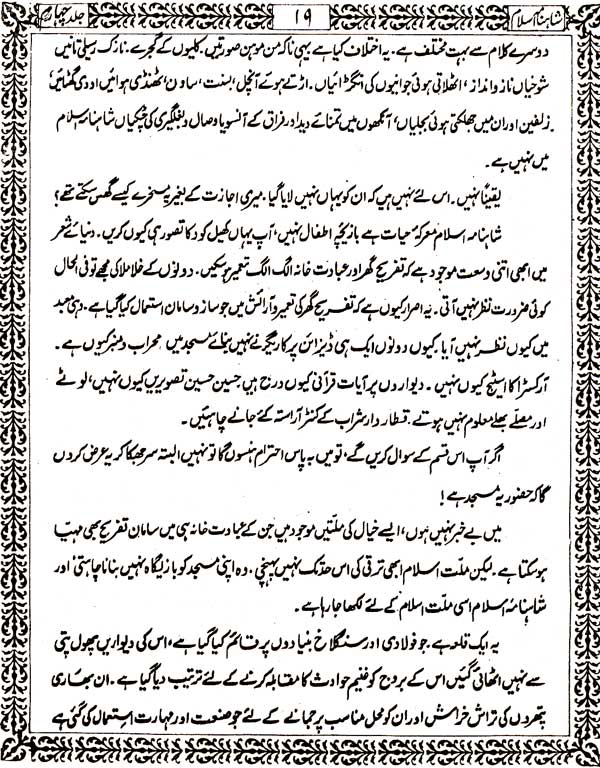 شاہنامۂ اسلام
۱۹
جلد چہارم
دوسرے کلام سے بہت مختلف ہے۔ یہ اختلاف کیا ہے یہی نا کہ من موہن صورتیں۔ کلیوں کے گجرے۔ نازک ریلی تانیں
شوخیاں ناز و انداز، اٹھلاتی ہوئی جوانیوں کی انگڑائیاں۔ اڑتے ہوئے آنچل، بسنت، ساون، ٹھنڈی ہوائیں اودی گھٹائیں
زلفیں اور ان میں جھلکتی ہوئی بجلیاں، آنکھوں میں تمنائے دیدار فراق کے آنسو یا وصال و بغلگیری کی چٹکیاں شاہنامہ اسلام
میں نہیں ہے۔
یقیناً نہیں۔ اس لئے نہیں ہیں کہ ان کو یہاں نہیں لایا گیا۔ میری اجازت کے بغیر یہ مسخرے کیسے گھس سکتے تھے؟
شاہنامہ اسلام معرکۂ حیات ہے بازیچۂ اطفال نہیں، آپ یہاں کھیل کود کا تصور ہی کیوں کریں۔ دنیائے شعر
میں ابھی اتنی وسعت موجود ہے کہ تفریح گھر اور عبادت خانہ الگ الگ تعمیر ہو سکیں۔ دونوں کے خلا ملا کی مجھے تو فی الحال
کوئی ضرورت نظر نہیں آتی۔ یہ اصرار کیوں ہے کہ تفریح گھر کی تعمیر و آرائش میں جو ساز و سامان استعمال کیا گیا ہے۔ وہی معبد
میں کیوں نظر نہیں آیا۔ کیوں دونوں ایک ہی ڈیزائن پر کاریگر نے نہیں بنائے مسجد میں محراب و منبر کیوں ہے۔
آرکسٹرا کا اسٹیج کیوں نہیں۔ دیواروں پر آیات قرآنی کیوں درج ہیں حسین حسین تصویریں کیوں نہیں، لوٹے
اور مصلے بھلے معلوم نہیں ہوتے۔ قطار وار شراب کے کنٹر آراستہ کئے جانے چاہئیں۔
اگر آپ اس قسم کے سوال کریں گے، تو میں بہ پاس احترام ہنسوں گا تو نہیں البتہ سر جھکا کر یہ عرض کر دوں
گا کہ حضور یہ مسجد ہے!
میں بے خبر نہیں ہوں، ایسے خیال کی ملتیں موجود ہیں جن کے عبادت خانہ ہی میں سامان تفریح بھی مہیا
ہو سکتا ہے۔ لیکن ملت اسلام ابھی ترقی کی اس حد تک نہیں پہنچی۔ وہ اپنی مسجد کو بازیگاہ نہیں بنانا چاہتی؛ اور
شاہنامۂ اسلام اسی ملت اسلام کے لئے لکھا جا رہا ہے۔
یہ ایک قلعہ ہے۔ جو فولادی اور سنگلاخ بنیادوں پر قائم کیا گیا ہے، اس کی دیواریں پھول پتی
سے نہیں اٹھائی گئیں اس کے بروج کو غنیم حوادث کا مقابلہ کرنے کے لئے ترتیب دیا گیا ہے۔ ان بھاری
پتھروں کی تراش خراش اور ان کو محل مناسب پر جمانے کے لئے جو صنعت اور مہارت استعمال کی گئی ہے